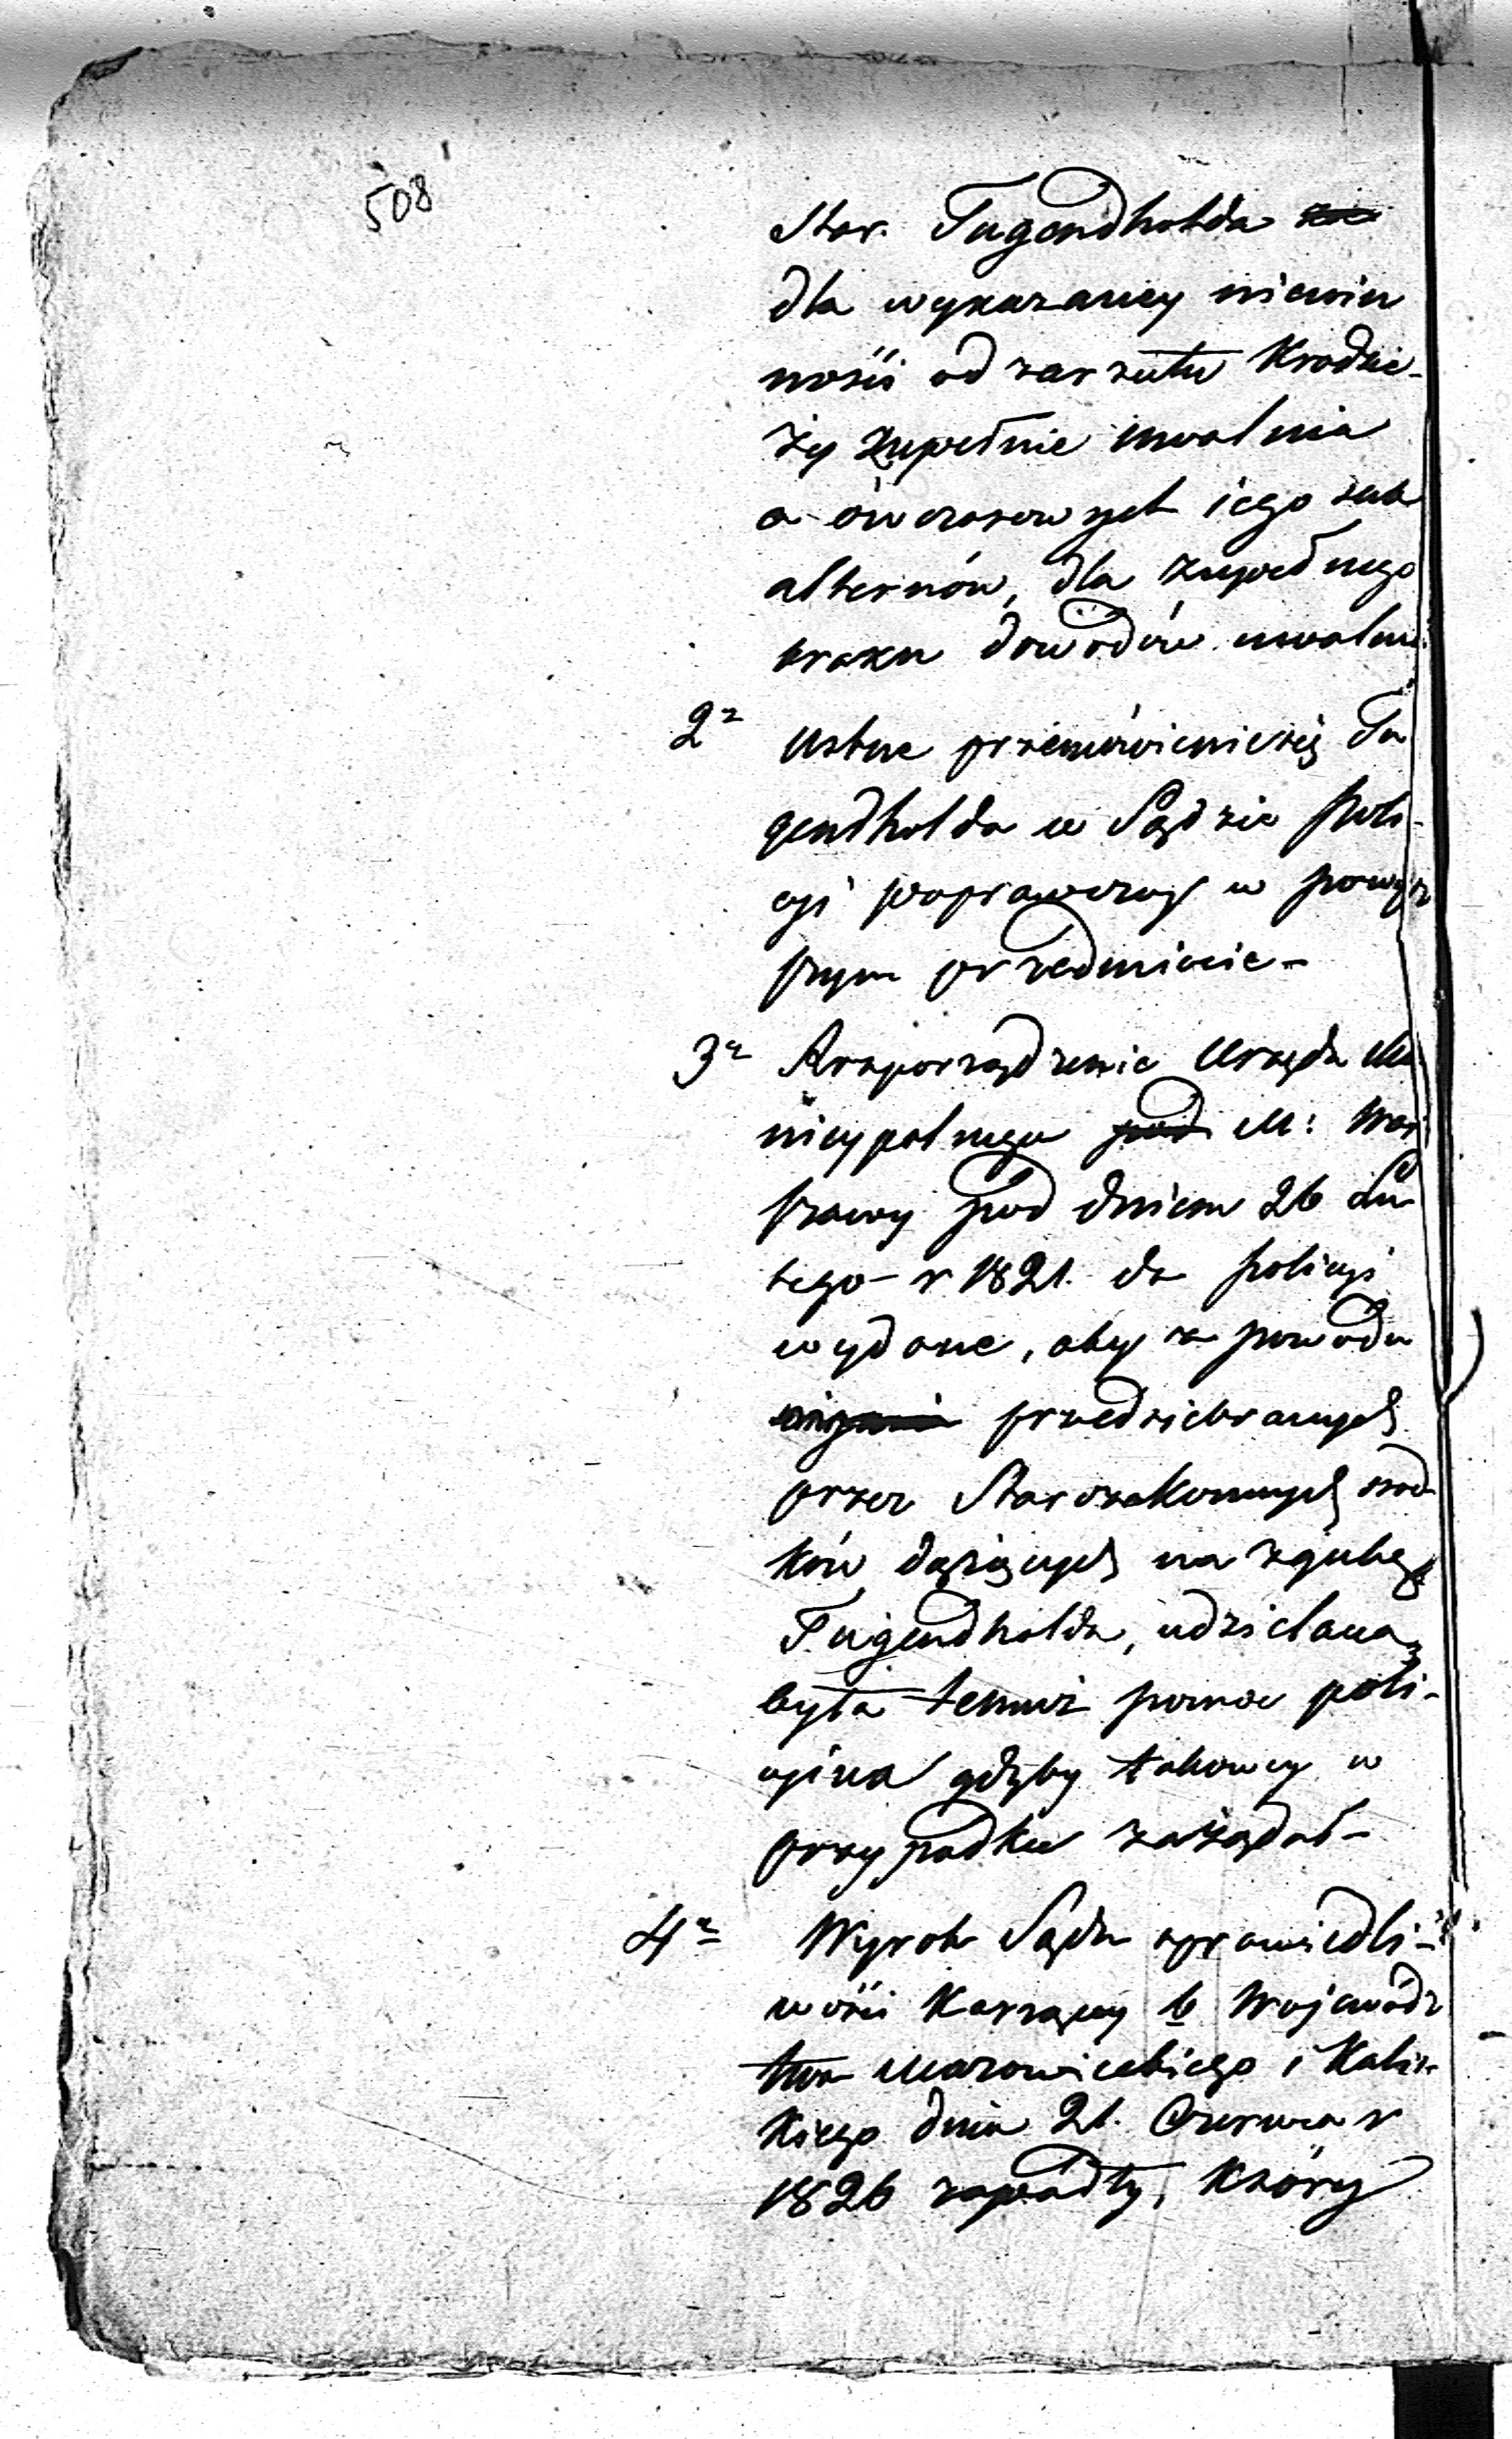 508
Star. Tugendholda
dla wykazaney niewin
ności od zarzutu Kradzie-
ży zupełnie uwalnia
a ówczasowych iego sub
alternów, dla zupełnego
braku dowodów uwalnia
2e Ustne przemówienie się Tu
gendholda w Sądzie Poli-
cyi poprawczey w powyż
szym przedmiocie -
3e Rozporządzenie Urzędu Mu
nicypalnego pod M: War
szawy pod dniem 26 Lu
tego r 1821. do policyi
wydane, aby z powodu
przedsiebranych
przez Starozakonnych środ
ków dążących na zgubę
Tugendholda, udzielana
była temuż pomoc poli-
cyina gdyby takowey w
przypadku zażądał -
4e Wyrok Sądu sprawiedli-
wości Karzącey b Wojewódz
twa Mazowieckiego i Kalis-
kiego dnia 21. Czerwca r
1826 zapadły, Który